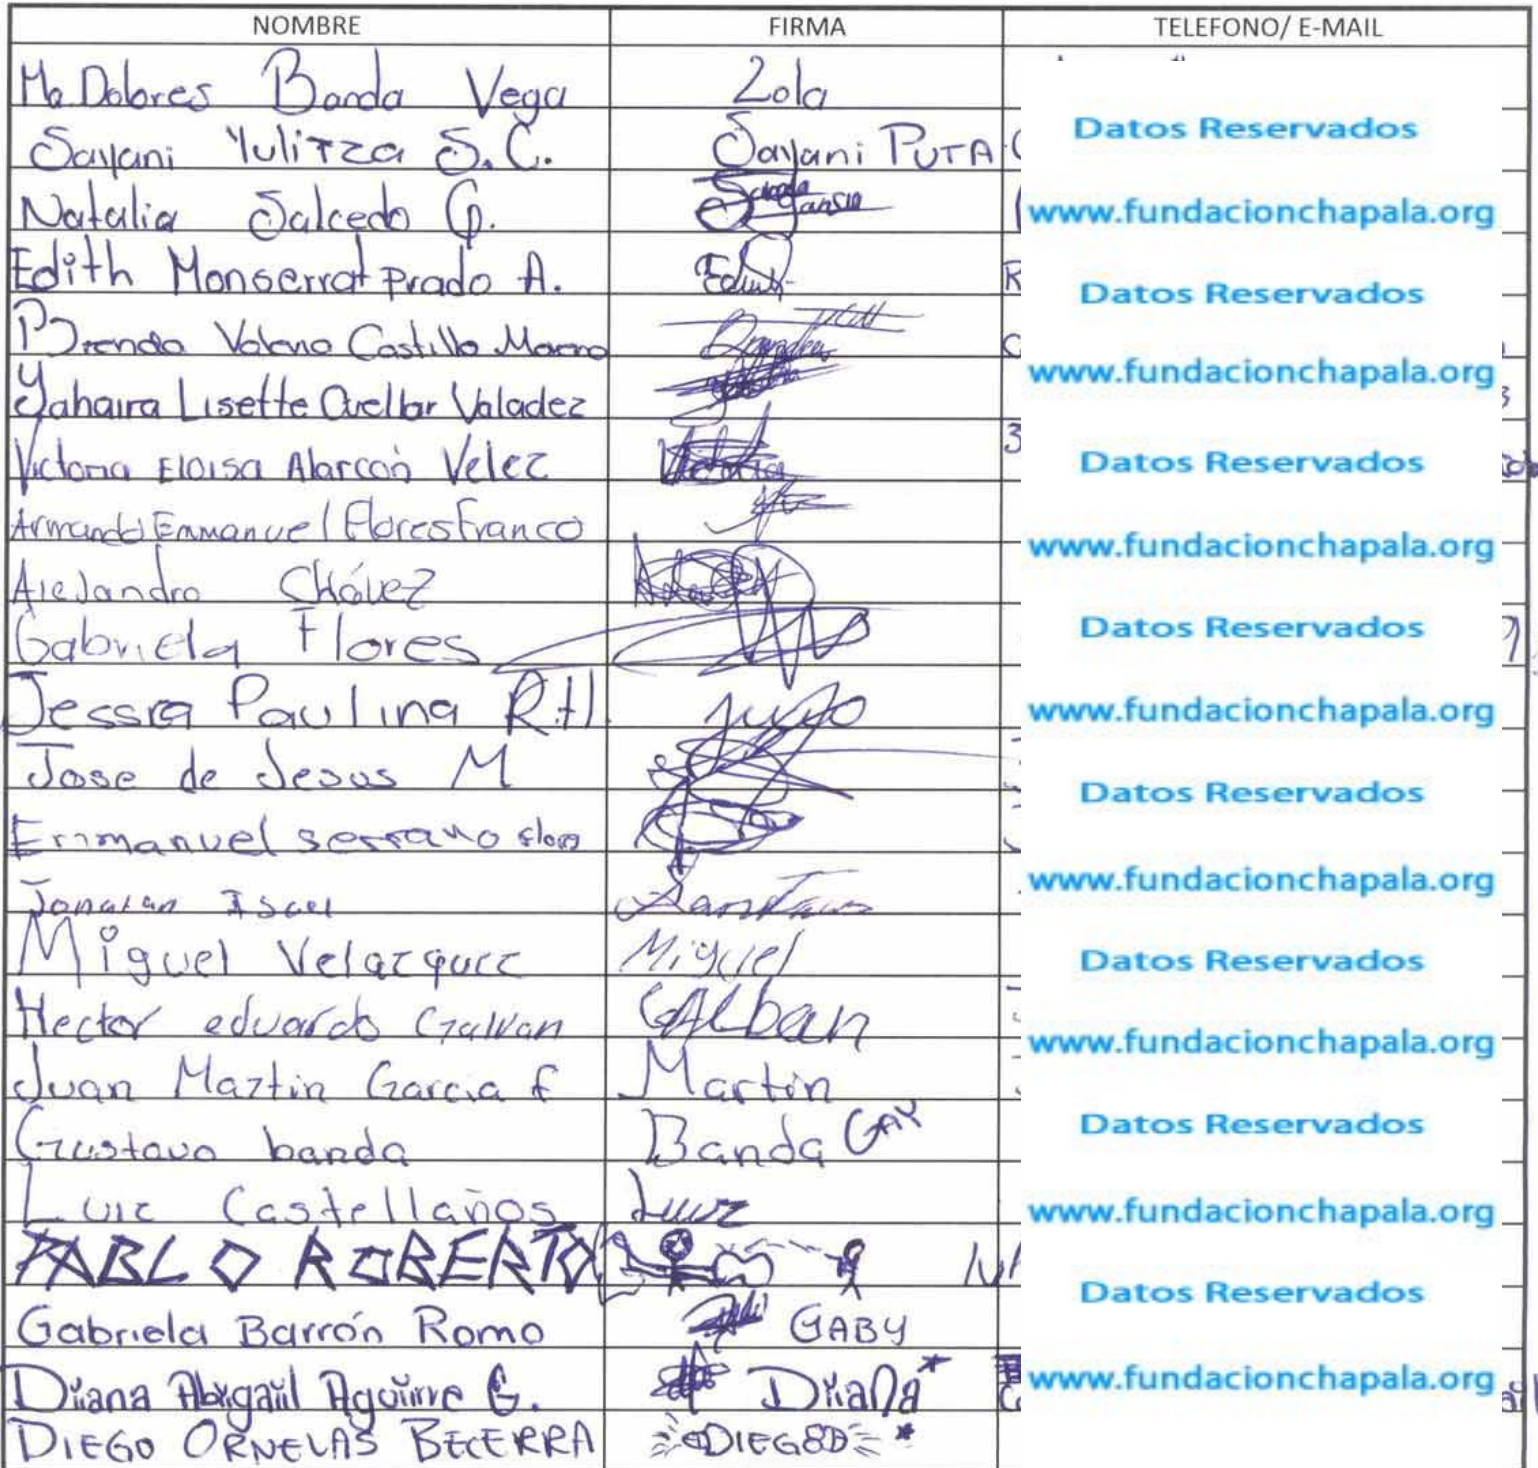 NOMBRE FIRMA TELEFONO/ E-MAIL
Ma. Dolores Banda Vega Lola
Datos Reservados
Sayani Yulitza S. C. Sayani PUTA
Natalia Salcedo G. www.fundacionchapala.org
Edith Monserrat Prado A. Edith
Datos Reservados
Brenda Castillo
www.fundacionchapala.org
Yahaira Lisette Cuellar Valadez
Victoria Eloisa Alarcón Velez Victoria Datos Reservados
Armando Emmanuel Flores Franco
www.fundacionchapala.org
Alejandro Chávez
Gabriela Flores Datos Reservados
Jessica Paulina R.H. www.fundacionchapala.org
Jose de Jesus M
Datos Reservados
Emmanuel serrano
www.fundacionchapala.org
Miguel Velazquez Miguel Datos Reservados
Hector eduardo Galvan GALban
www.fundacionchapala.org
Juan Martin Garcia f Martin
Gustavo banda Banda GAY Datos Reservados
Luiz Castellaños Luiz www.fundacionchapala.org
PABLO ROBERTO
Datos Reservados
Gabriela Barrón Romo GABY
Diana Abigail Aguirre G. Diana www.fundacionchapala.org
DIEGO ORNELAS BECERRA DIEGO